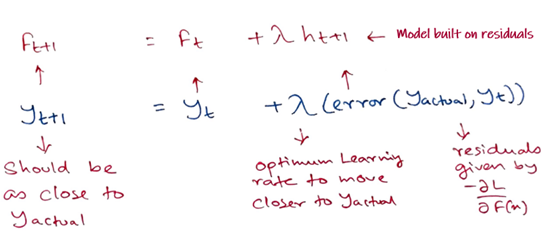 F_{t+1} = F_t + λ h_{t+1} ← Model built on residuals
y_{t+1} = y_t + λ (error (y_{actual}, y_t))
Should be
as close to
yactual
optimum Learning
rate to move
closer to yactual
residuals
given by
-∂L
∂F(x)